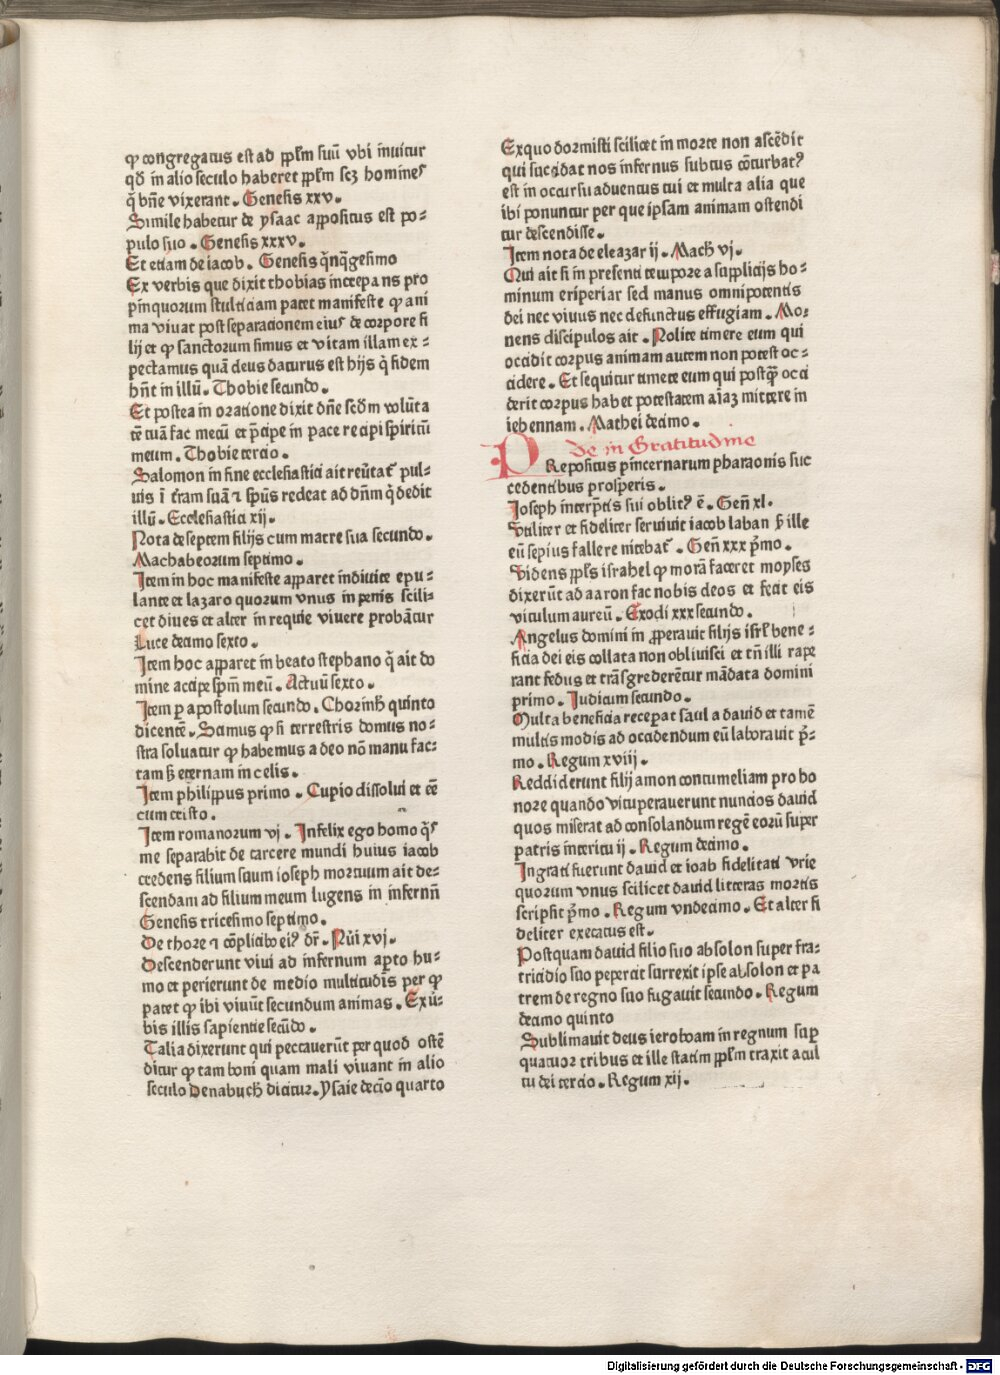 ꝙ congregatus est ad ppl̄m suū vbi inuitur
qđ in alio seculo haberet ppl̄m scȝ homines
q̄ bn̄e vixerant. Genesis xxv.
Simile habetur de ysaac appositus est po⸗
pulo suo. Genesis xxxv.
Et etiam de iacob. Genesis q̄nq̄gesimo
Ex verbis que dixit thobias increpans pro
pinquorum stulticiam patet manifeste ꝙ ani
ma viuat post separacionem eius de corpore fi
lij et ꝙ sanctorum simus et vitam illam ex⸗
pectamus quā deus daturus est hijs q̄ fidem
hn̄t in illū. Thobie secundo.
Et postea in oratione dixit dn̄e scd̄m volūta
tē tuā fac mecū et p̄cipe in pace recipi spiritū
meum. Thobie tercio.
Salomon in fine ecclesiastici ait reu̇tat̄ pul⸗
uis ī t̄ram suā ⁊ sp̄us redeat ad dn̄m q̇ dedit
illū. Ecclesiastici xij.
Nota de septem filijs cum matre sua secundo.
Machabeorum septimo.
Item in hoc manifeste apparet indiuite epu⸗
lante et lazaro quorum vnus in penis scili⸗
cet diues et alter in requie viuere probātur
Luce decimo sexto.
Item hoc apparet in beato stephano q̇ ait do
mine accipe spm̄ meū. Actuū sexto.
Item p apostolum secundo. Chorinth̄ quinto
dicentē. Scimus ꝙ si terrestris domus no⸗
stra soluatur ꝙ habemus a deo nō manu fac⸗
tam ß eternam in celis.
Item philippus primo. Cupio dissolui et eē
cum cristo.
Item romanorum vj. Infelix ego homo q̇s
me separabit de carcere mundi huius iacob
credens filium suum ioseph mortuum ait de⸗
scendam ad filium meum lugens in infernū
Genesis tricesimo septimo.
De chore ⁊ cōplicibꝰ eiꝰ dr̄. Nūi xvj.
Descenderunt viui ad infernum apto hu⸗
mo et perierunt de medio multitudis per ꝙ
patet ꝙ ibi viuūt secundum animas. Exū⸗
bis illis sapientie secūdo.
Talia dixerunt qui peccauerūt per quod ostē
ditur ꝙ tam boni quam mali viuant in alio
seculo Denabuch̄ dicitur. ysaie deciō quarto
Exquo dormisti scilicet in morte non ascēdit
qui succidat nos infernus subtus cōturbatꝰ
est in occursu aduentus tui et multa alia que
ibi ponuntur per que ipsam animam ostendi
tur descendisse.
Item nota de eleazar ij. Mach̄ vj.
Qui ait si in presenti tempore a supplicijs ho⸗
minum eriperiar sed manus omnipotentis
dei nec viuus nec defunctus effugiam. Mo⸗
nens discipulos ait. Nolite timere eum qui
occidit corpus animam autem non potest oc⸗
cidere. Et sequitur timete eum qui postq̄ occi
derit corpus habet potestatem aīaȝ mittere in
iehennam. Mathei decimo.
de in Gratitudine
PRepositus pincernarum pharaonis suc
cedentibus prosperis.
Ioseph interp̄tis sui oblitꝰ ē. Gen̄ xl.
Vtiliter et fideliter seruiuit iacob laban ß ille
eū sepius fallere nitebat̄. Gen̄ xxx p̄mo.
Videns ppl̄s israhel ꝙ morā faceret moyses
dixerūt ad aaron fac nobis deos et fecit eis
vitulum aureū. Exodi xxx secundo.
Angelus domini in properauit filijs isrl̄ bene⸗
ficia dei eis collata non obliuisci et tn̄ illi rape
rant fedus et trāsgrederētur mādata domini
primo. Iudicum secundo.
Multa beneficia recepat saul a dauid et tamē
multis modis ad occidendum eū laborauit p̄⸗
mo. Regum xviij.
Reddiderunt filij amon contumeliam pro bo
nore quando vituperauerunt nuncios dauid
quos miserat ad consolandum regē eorū super
patris interitu ij. Regum decimo.
Ingrati fuerunt dauid et ioab fidelitati vrie
quorum vnus scilicet dauid litteras mortis
scripsit p̄mo. Regum vndecimo. Et alter fi
deliter executus est.
Postquam dauid filio suo absolon super fra⸗
tricidio suo pepercit surrexit ipse absolon et pa
trem de regno suo fugauit secundo. Regum
decimo quinto
Sublimauit deus ieroboam in regnum sup
quatuor tribus et ille statim ppl̄m traxit a cul
tu dei tercio. Regum xij.
Digitalisierung gefördert durch die Deutsche Forschungsgemeinschaft - DFG